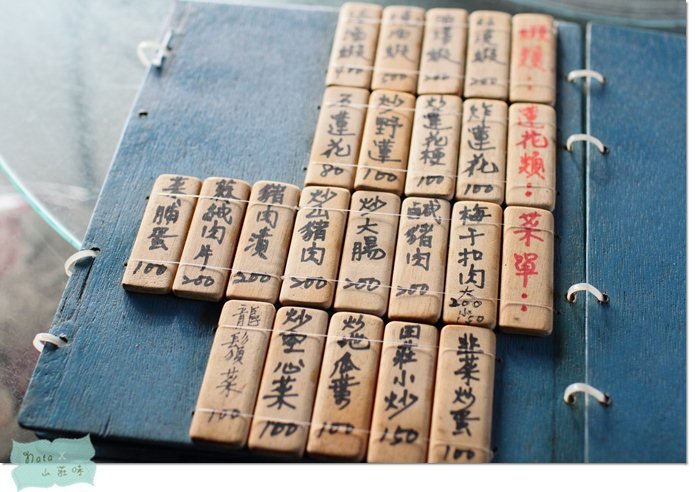 蝦類：
蝦
200
蝦
200
蝦
500
蝦
400
蓮花類：
炸蓮花
100
炒蓮花梗
100
炒野蓮
100
蓮花
80
菜單：
梅干扣肉
大200
小150
鹹豬肉
200
炒大腸
200
炒山豬肉
200
豬肉
200
鹹肉片
200
菜脯蛋
100
韭菜炒蛋
100
田莊小炒
150
炒地瓜葉
100
炒空心菜
100
龍鬚菜
100
山莊味